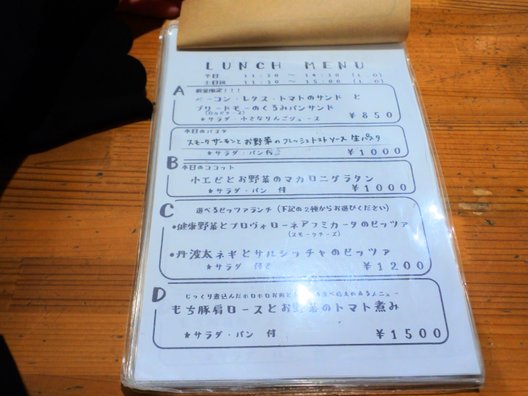 LUNCH MENU
平日 11:30 ～ 14:30 (L.O)
土日祝 11:30 ～ 15:00 (L.O)
A
数量限定!!!
ベーコン・レタス・トマトのサンド と
ブリードモーのくるみパンサンド
★サラダ・小さなりんごジュース
¥850
本日のパスタ
スモークサーモンとお野菜のフレッシュトマトソース 生パスタ
★サラダ・パン付
¥1000
B
本日のココット
小エビとお野菜のマカロニグラタン
★サラダ・パン 付
¥1000
C
選べるピッツァランチ (下記の2種からお選びください)
●健康野菜とプロヴォローネアフミカータのピッツァ
(スモークチーズ)
●丹波太ネギとサルシッチャのピッツァ
★サラダ 付き
¥1200
D
じっくり煮込んだホロホロなお肉
メニュー
もち豚肩ロースとお野菜のトマト煮み
★サラダ・パン 付
¥1500